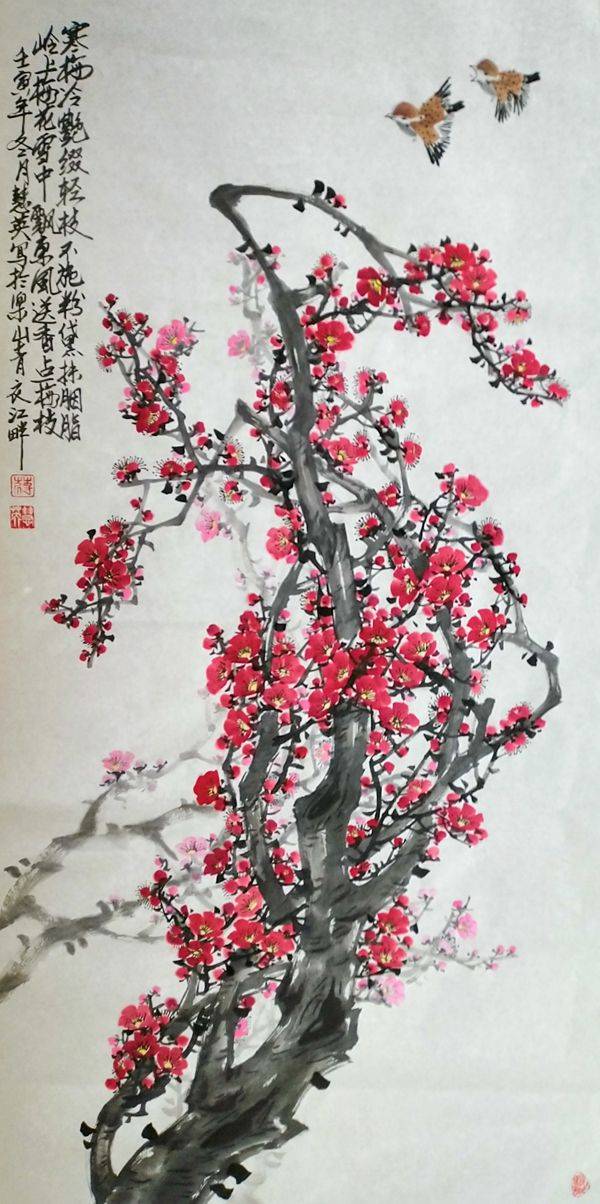 寒梅冷艷缀轻枝不施粉黛抹胭脂
岭上梅花雪中飘东风送香占梅枝
壬寅年冬月慧英写於梁山青衣江畔